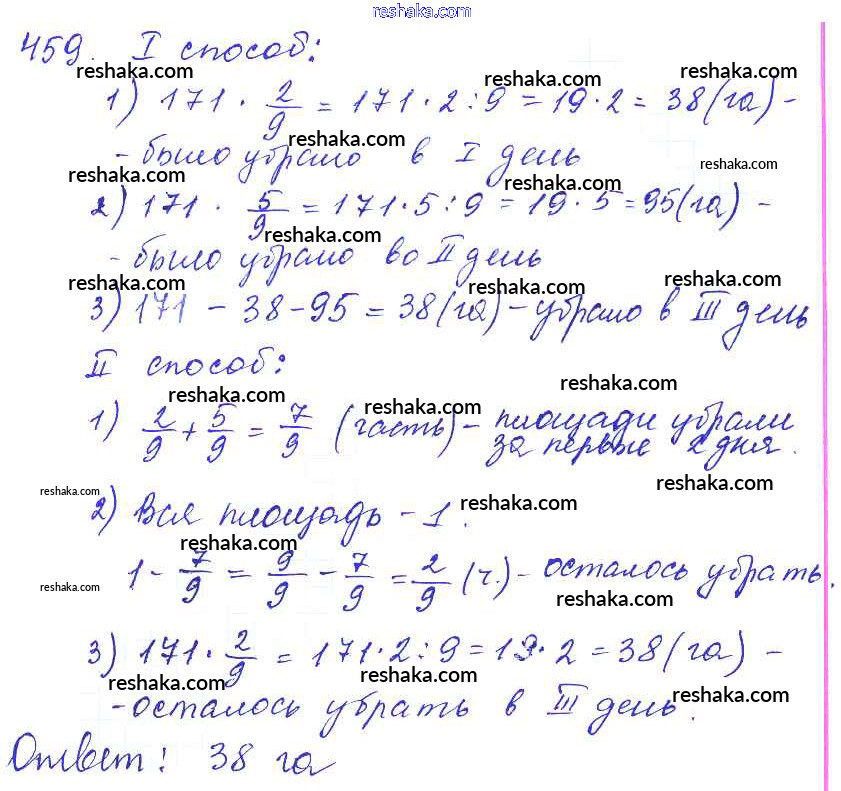 reshaka.com
459. I способ:
reshaka.com reshaka.com reshaka.com
1) 171 · 2/9 = 171 · 2 : 9 = 19 · 2 = 38 (га) -
reshaka.com
- было убрано в I день
reshaka.com reshaka.com reshaka.com
2) 171 · 5/9 = 171 · 5 : 9 = 19 · 5 = 95 (га) -
reshaka.com
- было убрано во II день
reshaka.com reshaka.com
3) 171 - 38 - 95 = 38 (га) - убрано в III день
II способ:
reshaka.com reshaka.com reshaka.com
1) 2/9 + 5/9 = 7/9 (часть) - площади убрали
за первые 2 дня.
reshaka.com reshaka.com reshaka.com
2) Вся площадь - 1.
reshaka.com
1 - 7/9 = 9/9 - 7/9 = 2/9 (ч.) - осталось убрать.
reshaka.com reshaka.com
3) 171 · 2/9 = 171 · 2 : 9 = 19 · 2 = 38 (га) -
reshaka.com reshaka.com reshaka.com
- осталось убрать в III день.
Ответ: 38 га